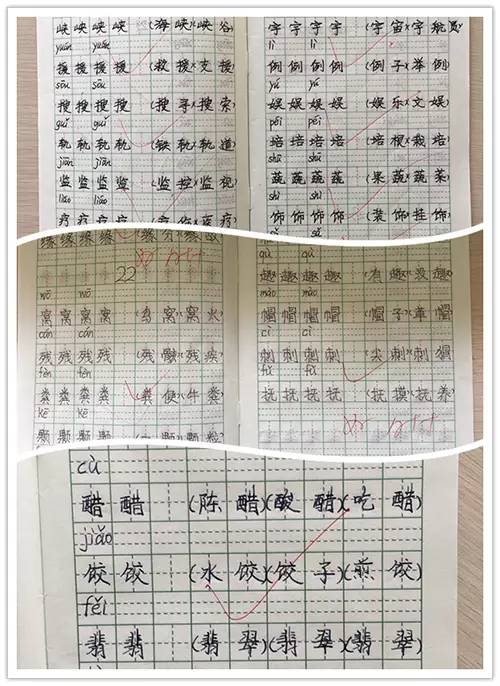 峡 峡 峡 峡 (海峡)(峡谷)
yuán yuán
援 援 援 援 (救援)(支援)
sōu sōu
搜 搜 搜 搜 (搜寻)(搜索)
guǐ guǐ
轨 轨 轨 轨 (铁轨)(轨道)
jiān jiān
监 监 监 监 (监控)(监视)
liáo liáo
疗 疗 疗 疗
宇 宇 宇 宇 (宇宙)(宇航员)
lì lì
例 例 例 例 (例子)(举例)
yú yú
娱 娱 娱 娱 (娱乐)(文娱)
péi péi
培 培 培 培 (培根)(栽培)
shū shū
蔬 蔬 蔬 蔬 (果蔬)(蔬菜)
shì shì
饰 饰 饰 饰 (装饰)(挂饰)
sù sù
缘 缘 缘 缘
22
wō wō
窝 窝 窝 (鸟窝)(窝火)
cán cán
残 残 残 (残骸)(残疾)
fèn fèn
粪 粪 粪 (粪便)(牛粪)
kē kē
颗 颗 颗
qù qù
趣 趣 趣 (有趣)(没趣)
mào mào
帽 帽 帽 (帽子)(草帽)
cì cì
刺 刺 刺 (尖刺)(刺猬)
fǔ fǔ
抚 抚 抚 (抚摸)(抚养)
cù
醋 醋 (陈醋)(酸醋)(吃醋)
jiǎo
饺 饺 (水饺)(饺子)(煎饺)
fěi
翡 翡 (翡翠)(翡翠)(翡翠)